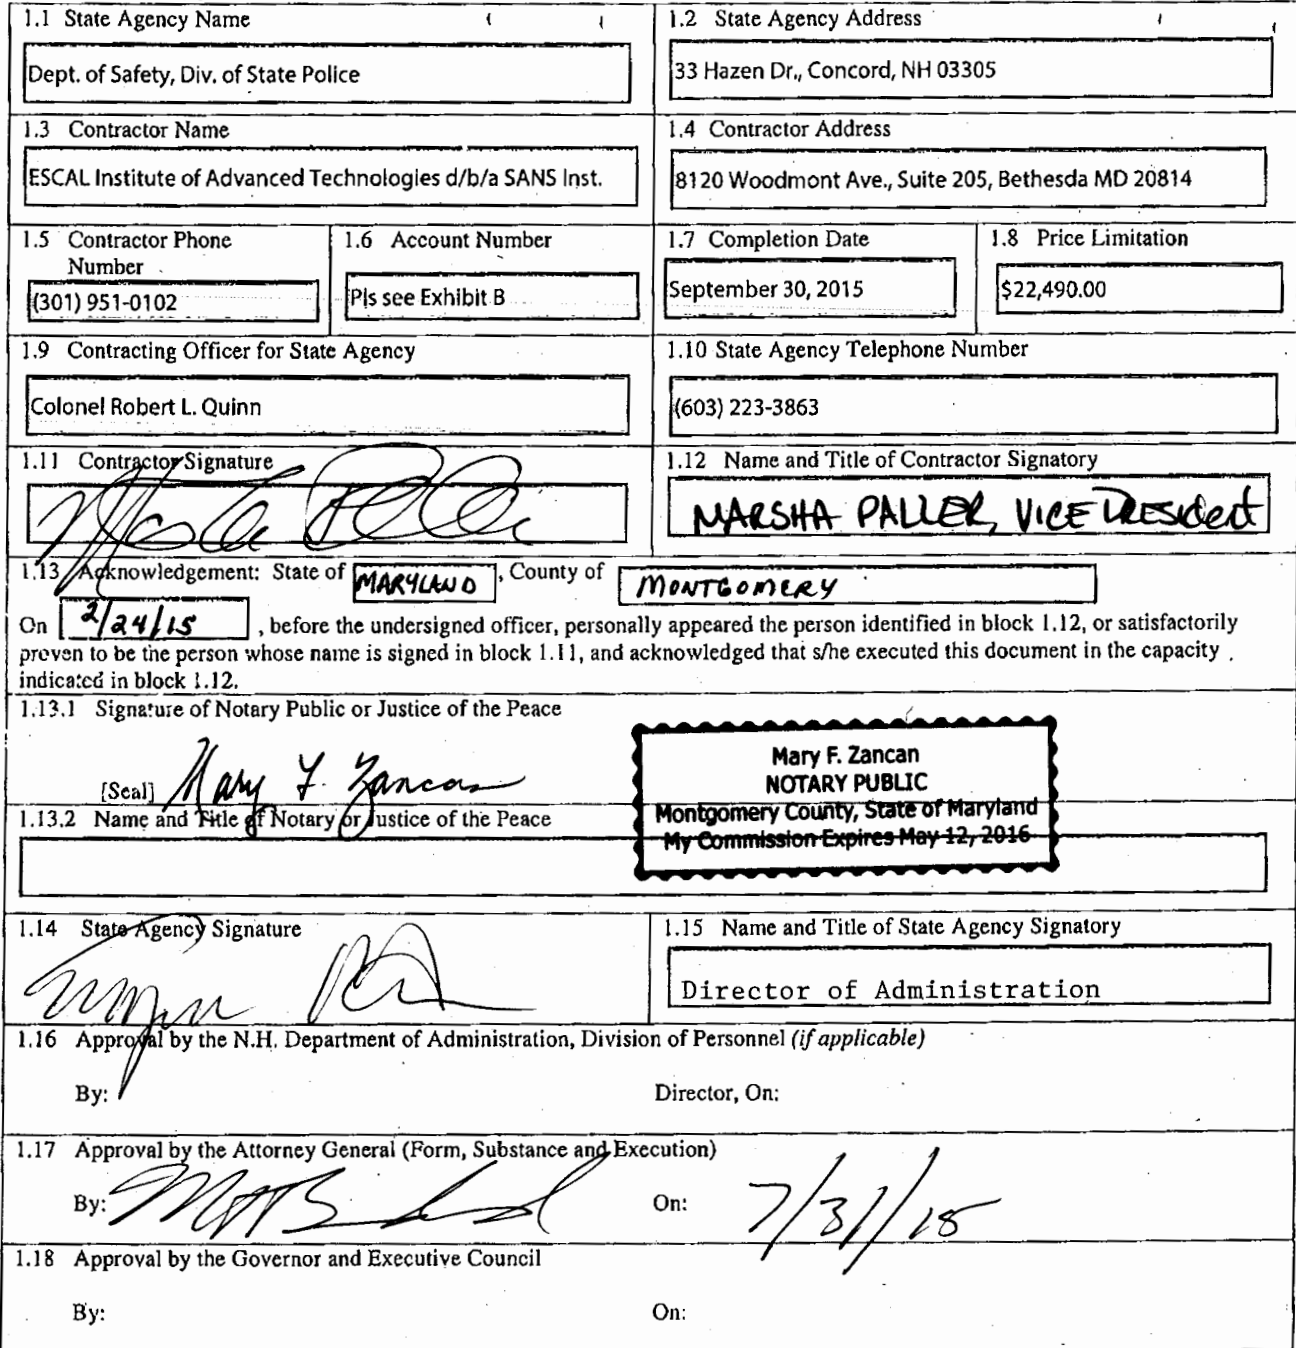 1.1 State Agency Name
Dept. of Safety, Div. of State Police
1.2 State Agency Address
33 Hazen Dr., Concord, NH 03305
1.3 Contractor Name
ESCAL Institute of Advanced Technologies d/b/a SANS Inst.
1.4 Contractor Address
8120 Woodmont Ave., Suite 205, Bethesda MD 20814
1.5 Contractor Phone
Number
(301) 951-0102
1.6 Account Number
Pls see Exhibit B
1.7 Completion Date
September 30, 2015
1.8 Price Limitation
$22,490.00
1.9 Contracting Officer for State Agency
Colonel Robert L. Quinn
1.10 State Agency Telephone Number
(603) 223-3863
1.11 Contractor Signature
1.12 Name and Title of Contractor Signatory
MARSHA PALLER, VICE PRESIdent
1.13 Acknowledgement: State of MARYLAND, County of MONTGOMERY
On 2/24/15, before the undersigned officer, personally appeared the person identified in block 1.12, or satisfactorily
proven to be the person whose name is signed in block 1.11, and acknowledged that s/he executed this document in the capacity
indicated in block 1.12.
1.13.1 Signature of Notary Public or Justice of the Peace
[Seal] Mary F. Zancan
Mary F. Zancan
NOTARY PUBLIC
Montgomery County, State of Maryland
My Commission Expires May 12, 2016
1.13.2 Name and Title of Notary or Justice of the Peace
1.14 State Agency Signature
1.15 Name and Title of State Agency Signatory
Director of Administration
1.16 Approval by the N.H. Department of Administration, Division of Personnel (if applicable)
By:
Director, On:
1.17 Approval by the Attorney General (Form, Substance and Execution)
By:
On: 7/31/15
1.18 Approval by the Governor and Executive Council
By:
On: